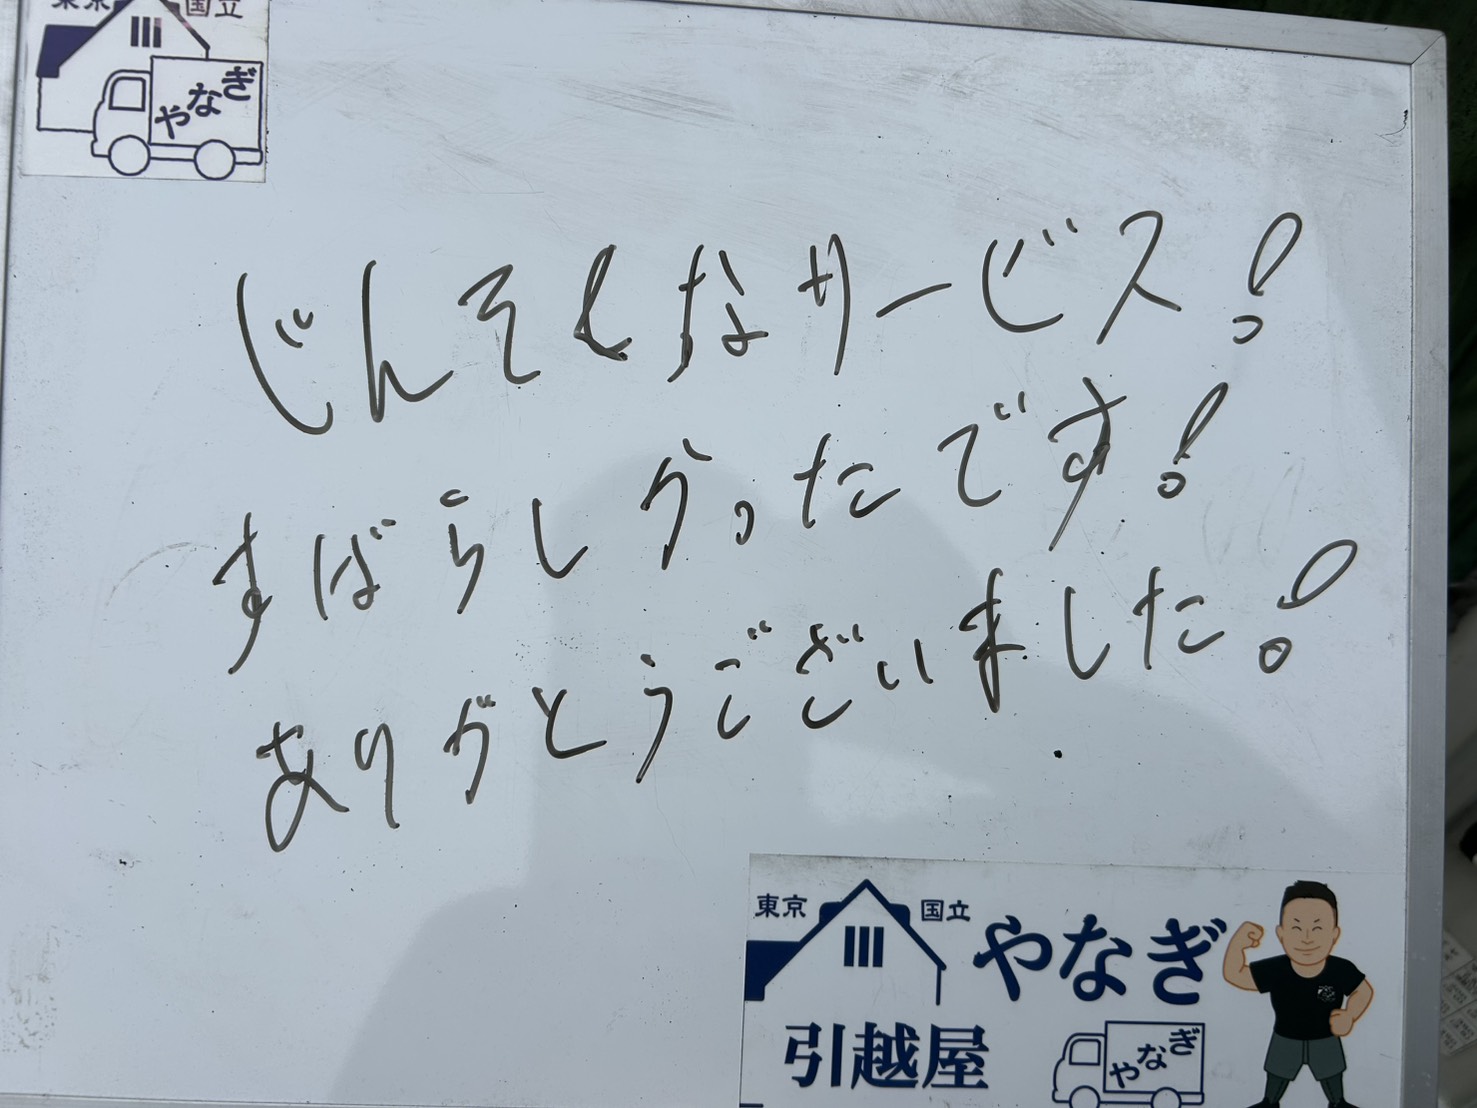 東京 国立
やなぎ
じんそくなサービス!
すばらしかったです!
ありがとうございました!
東京 国立 やなぎ
引越屋
やなぎ